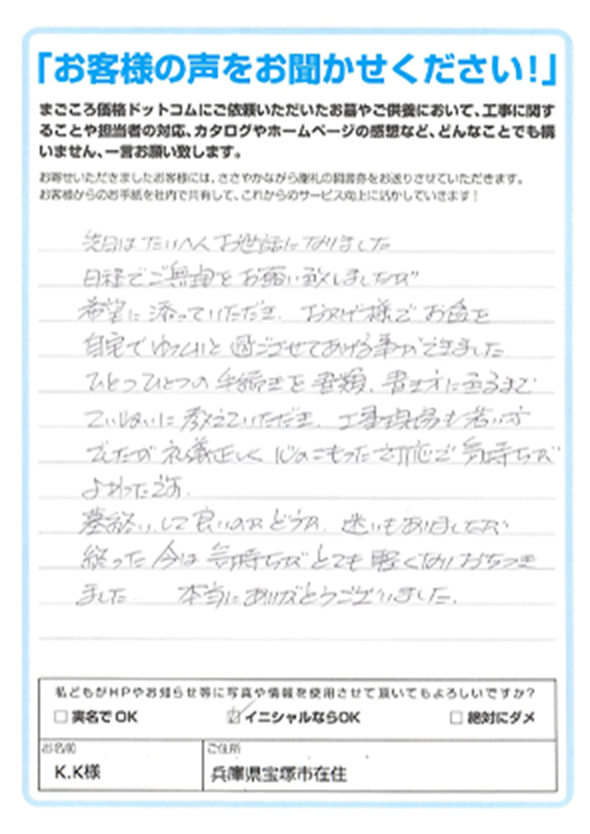 「お客様の声をお聞かせください！」
まごころ価格ドットコムにご依頼いただいたお墓やご供養において、工事に関す
ることや担当者の対応、カタログやホームページの感想など、どんなことでも構
いません、一言お願い致します。
お寄せいただきましたお客様には、ささやかながら御礼の図書券をお送りさせていただきます。
お客様からのお手紙を社内で共有して、これからのサービス向上に活かしていきます！
先日はたいへんお世話になりました
日程でご無理をお願い致しましたが
希望に添っていただき、おかげ様でお盆を
自宅でゆっくりと過ごさせてあげる事ができました
ひとつひとつの手続きを書類、書き方に至るまで
ていねいに教えていただき、工事現場も若い方
でしたが礼儀正しく心のこもった対応で気持ちが
よかったです。
墓終い、して良いのかどうか、迷いもありましたが
終った今は気持ちがとても軽くなりおちつき
ました。 本当にありがとうございました。
私どもがHPやお知らせ等に写真や情報を使用させて頂いてもよろしいですか？
□ 実名でOK ☑ イニシャルならOK □ 絶対にダメ
お名前 ご住所
K.K様 兵庫県宝塚市在住